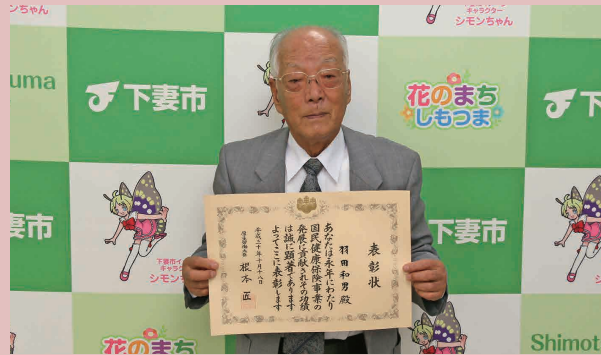 ちゃん
キャラクター
シモンちゃん
uma
下妻市
花のまち
しもつま
下
妻市
下妻市イ
キャラク
シモンち
下妻市
キャラクター
シモンちゃん
花のまち
Shimot
表彰状
羽田和男殿
あなたは永年にわたり
国民健康保険事業の
発展に貢献されその功績
は誠に顕著であります
よってここに表彰します
平成三十年十月十八日
厚生労働大臣 根本匠